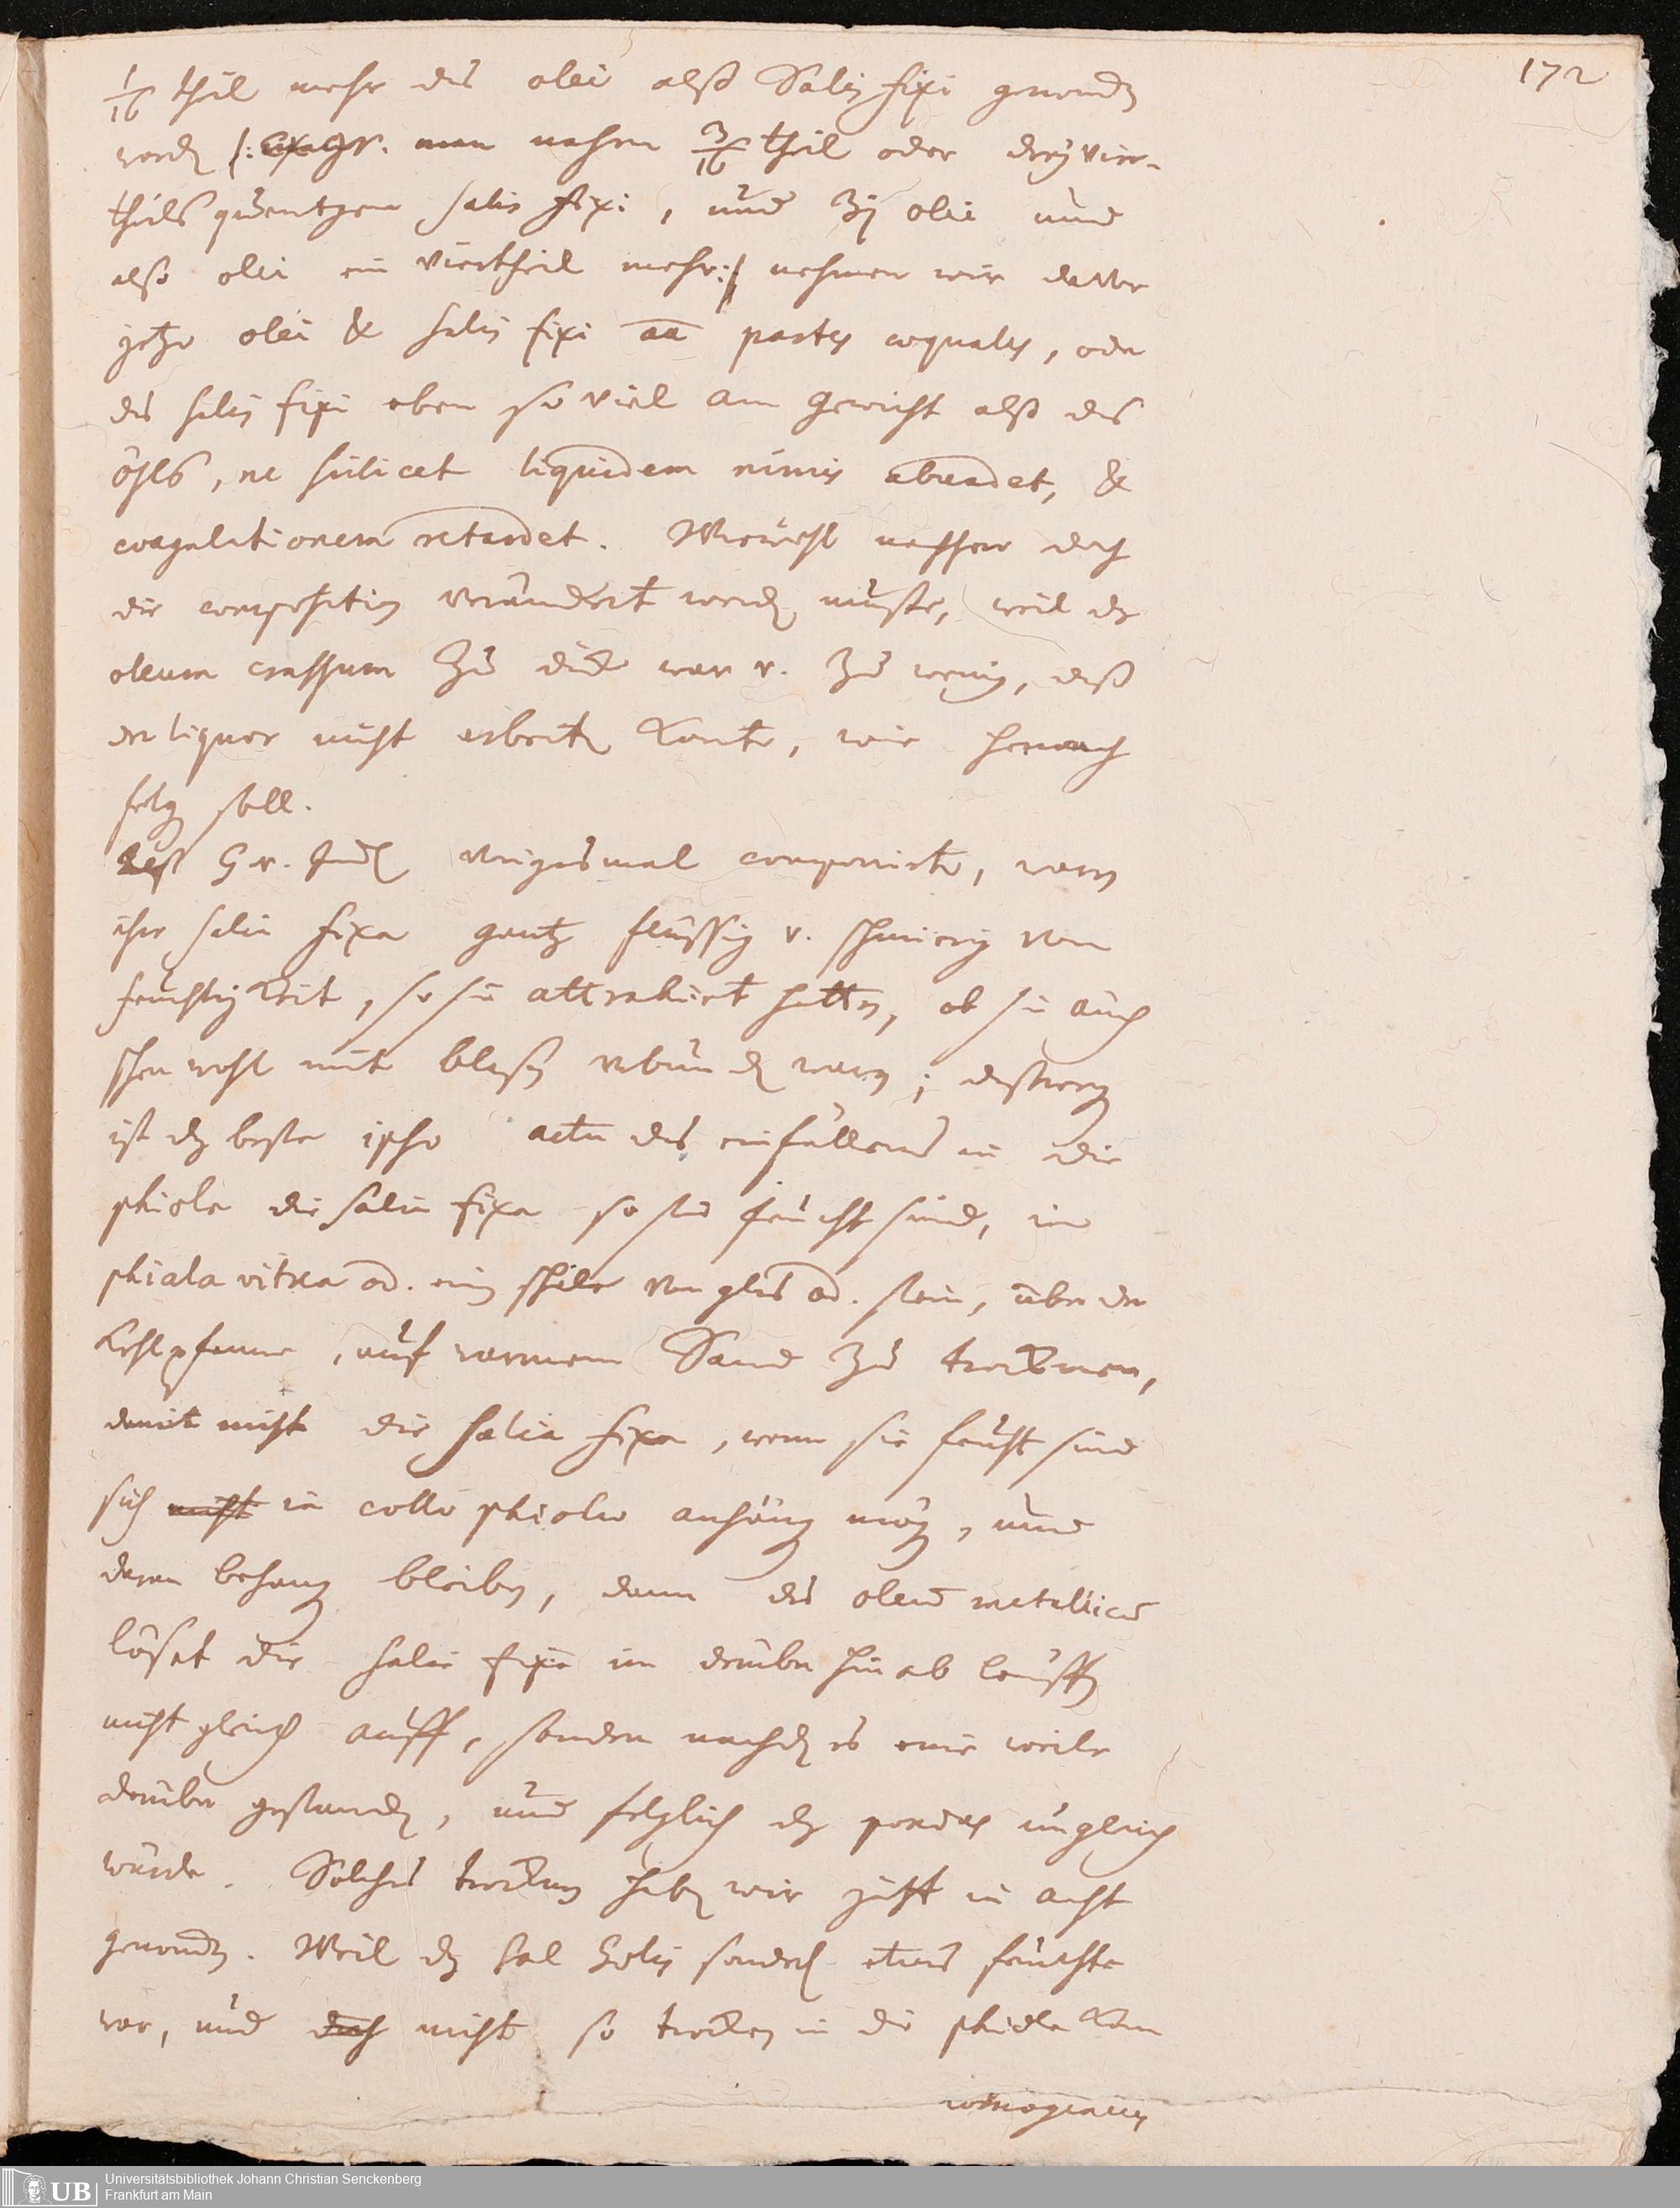 172
1/16 theil mehr des olei alß Salis fixi genomen
werden /: ex. gr. man nahm 3/16 theil oder drey vier-
theils quentgen salis fixi, und ʒj olei und
also olei ein viertheil mehr :/ nehmen wir davor
jetzo olei & salis fixi aa partes æquales, oder
des salis fixi eben so viel am gewicht alß des
öhls, ne scilicet liquidum nimis abundet, &
coagulationem retardet. Wiewohl nachher doch
die composition verändert werden muste, weil das
oleum crassum zu dick war v. zu wenig, daß
der liquor nicht arbeiten konte, wie hernach
folgen soll.
Alß Gr. Jud. vorigesmal componirte, waren
ihre salia fixa gantz flüssig v. schmierig von
feuchtigkeit, so sie attrahirt hatten, ob sie auch
schon wohl mit blasen verbunden waren; deßwegen
ist das beste ipso actu des einfüllens in die
phiole die salia fixa so sie feucht sind, in
phiala vitrea od. einer schale von glas od. stein, über der
kohlpfanne, auf warmem Sand zu trocknen,
damit nicht die salia fixa, wenn sie feucht sind
sich nicht in collo phiolæ anhängen mögen, und
daran behangen bleiben, dann das oleum metallicum
löset die salia fixa im drüber hinab lauffen
nicht gleich auff, sondern nachdem es eine weile
drüber gestanden, und folglich das pondus ungleich
würde. Solches trocknen haben wir jetzt in acht
genommen. Weil das Sal Solis sonderl. etwas feuchte
war, und doch nicht so trocken in die phiole kam